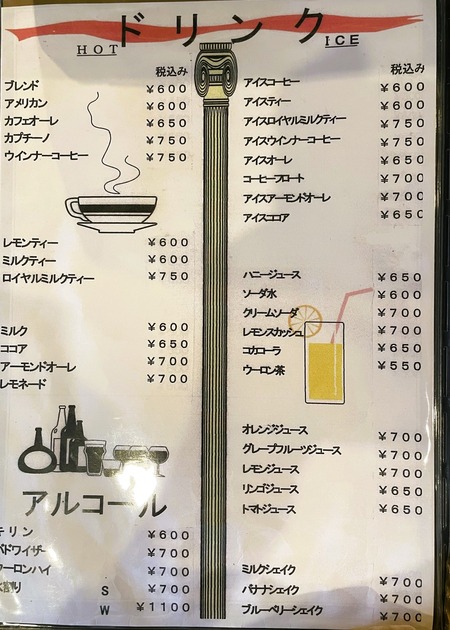 ドリンク
HOT
税込み
ブレンド ¥600
アメリカン ¥600
カフェオーレ ¥650
カプチーノ ¥750
ウインナーコーヒー ¥750
レモンティー ¥600
ミルクティー ¥600
ロイヤルミルクティー ¥750
ミルク ¥600
ココア ¥650
アーモンドオーレ ¥700
レモネード ¥700
アルコール
キリン ¥600
バドワイザー ¥700
ウーロンハイ ¥700
S ¥700
W ¥1100
ICE
税込み
アイスコーヒー ¥600
アイスティー ¥600
アイスロイヤルミルクティー ¥750
アイスウインナーコーヒー ¥750
アイスオーレ ¥650
コーヒーフロート ¥700
アイスアーモンドオーレ ¥700
アイスココア ¥650
ハニージュース ¥650
ソーダ水 ¥600
クリームソーダ ¥700
レモンスカッシュ ¥700
コカコーラ ¥650
ウーロン茶 ¥550
オレンジジュース ¥700
グレープフルーツジュース ¥700
レモンジュース ¥700
リンゴジュース ¥650
トマトジュース ¥650
ミルクシェイク ¥700
バナナシェイク ¥700
ブルーベリーシェイク ¥700